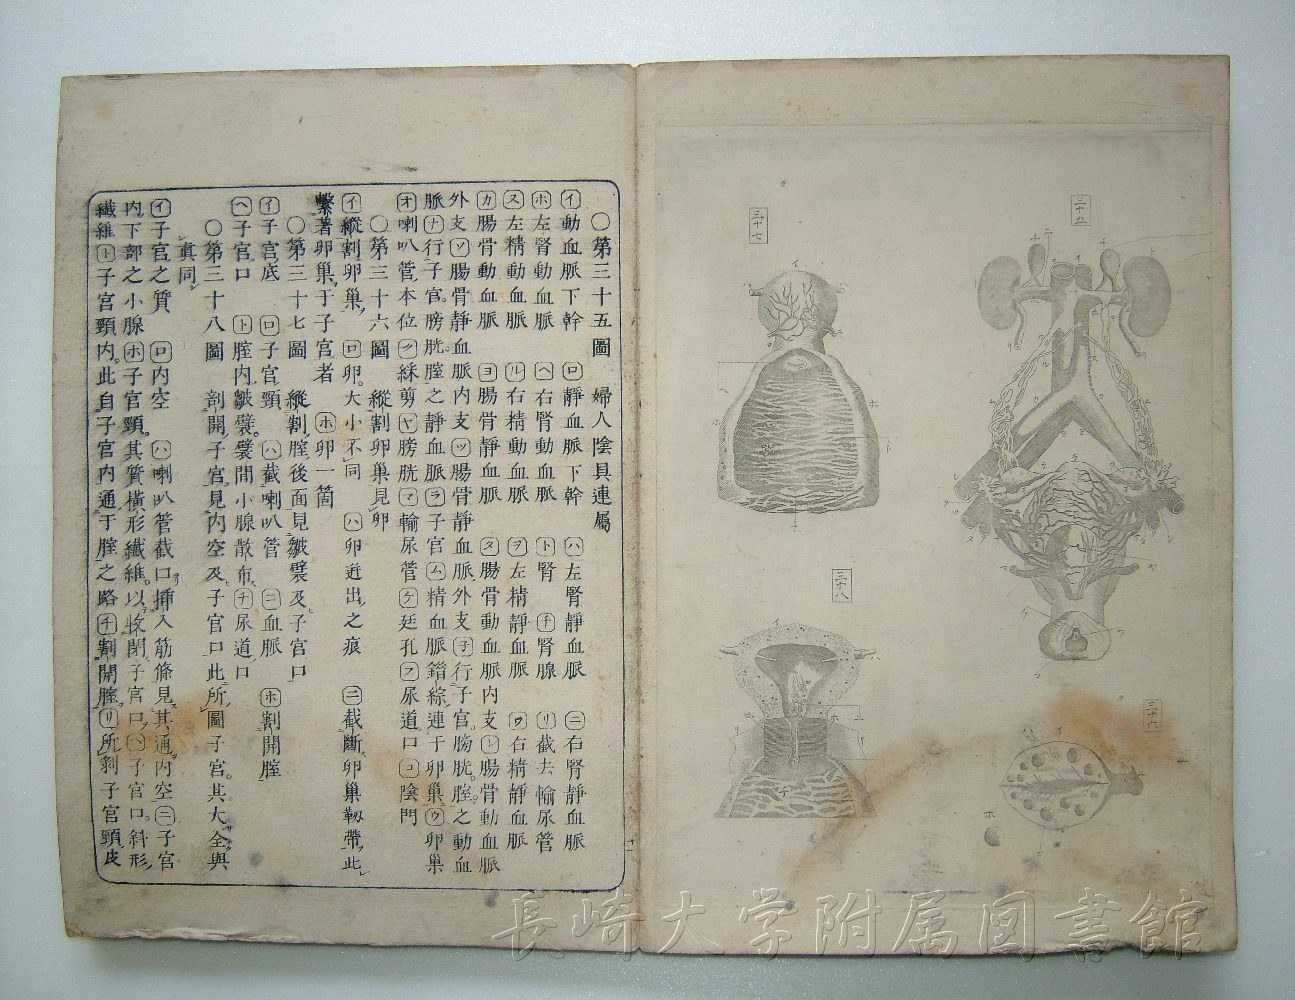 ○第三十五圖　婦人陰具連屬
㋑動血脈下幹　㋺靜血脈下幹　㋩左腎靜血脈　㋥右腎靜血脈
㋭左腎動血脈　㋬右腎動血脈　㋣腎　㋠腎腺　㋷截去輸尿管
㋦左精動血脈　㋸右精動血脈　㋾左精靜血脈　㋻右精靜血脈
㋕腸骨動血脈　㋵腸骨靜血脈　㋟腸骨動血脈內支㋹腸骨動血脈
外支㋞腸骨靜血脈內支㋡腸骨靜血脈外支㋧行子宮膀胱腟之動血
脈㋤行子宮膀胱腟之靜血脈㋶子宮㋰精血脈錯綜連于卵巢㋒卵巢
㋔喇叭管本位㋗綵剪㋳膀胱㋮輸尿管㋘廷孔㋫尿道口㋙陰門
○第三十六圖　縱割卵巢見卵
㋑縱割卵巢　㋺卵大小不同　㋩卵逬出之痕　㋥截斷卵巢靱帶此
繫著卵巢于子宮者　㋭卵一箇
○第三十七圖　縱割腟後面見皺襞及子宮口
㋑子宮底　㋺子宮頸　㋩截喇叭管　㋥血脈　㋭割開腟
㋬子宮口　㋣腟內皺襞襞間小腺散布㋠尿道口
○第三十八圖　剖開子宮見內空及子宮口此所圖子宮其大全與
真同
㋑子宮之質　㋺內空　㋩喇叭管截口揷入筋條見其通內空㋥子宮
內下部之小腺㋭子宮頸其質橫形纖維以收閉子宮口㋬子宮口斜形
纖維㋣子宮頸內此自子宮內通于腟之路㋠割開腟㋷所剝子宮頸皮
十一
三十五
三十七
三十八
三十六
長崎大学附属図書館